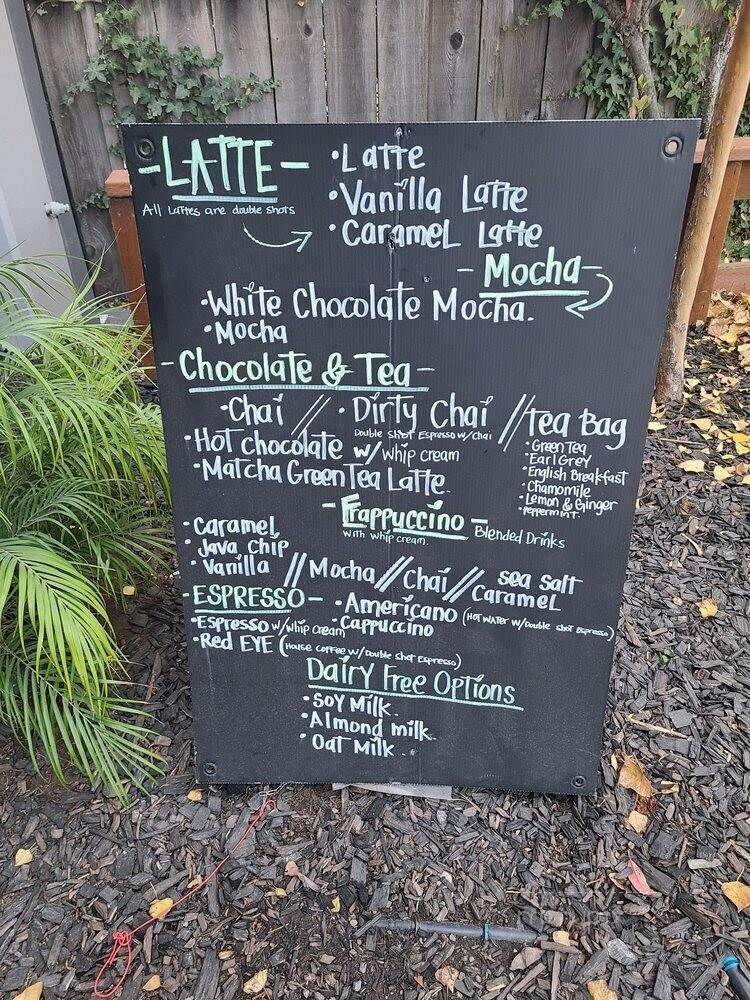 -LATTE-
All Lattes are double shots
•Latte
•Vanilla Latte
•Caramel Latte
-Mocha-
•White Chocolate Mocha.
•Mocha
-Chocolate & Tea-
•Chai // •Dirty Chai // Tea Bag
Double Shot Espresso w/chai
•Hot Chocolate w/whip cream
•Matcha Green Tea Latte.
•Green Tea
•Earl Grey
•English Breakfast
•Chamomile
•Lemon & Ginger
•Peppermint.
-Frappuccino-
with whip cream.
Blended Drinks
•Caramel
•Java Chip
•Vanilla // Mocha // Chai // Sea Salt
Caramel
-ESPRESSO-
•Espresso w/whip cream
•Red EYE (House coffee w/Double Shot Espresso)
•Americano (Hot water w/Double Shot Espresso)
•Cappuccino
Dairy Free Options
•Soy Milk.
•Almond milk.
•Oat Milk.